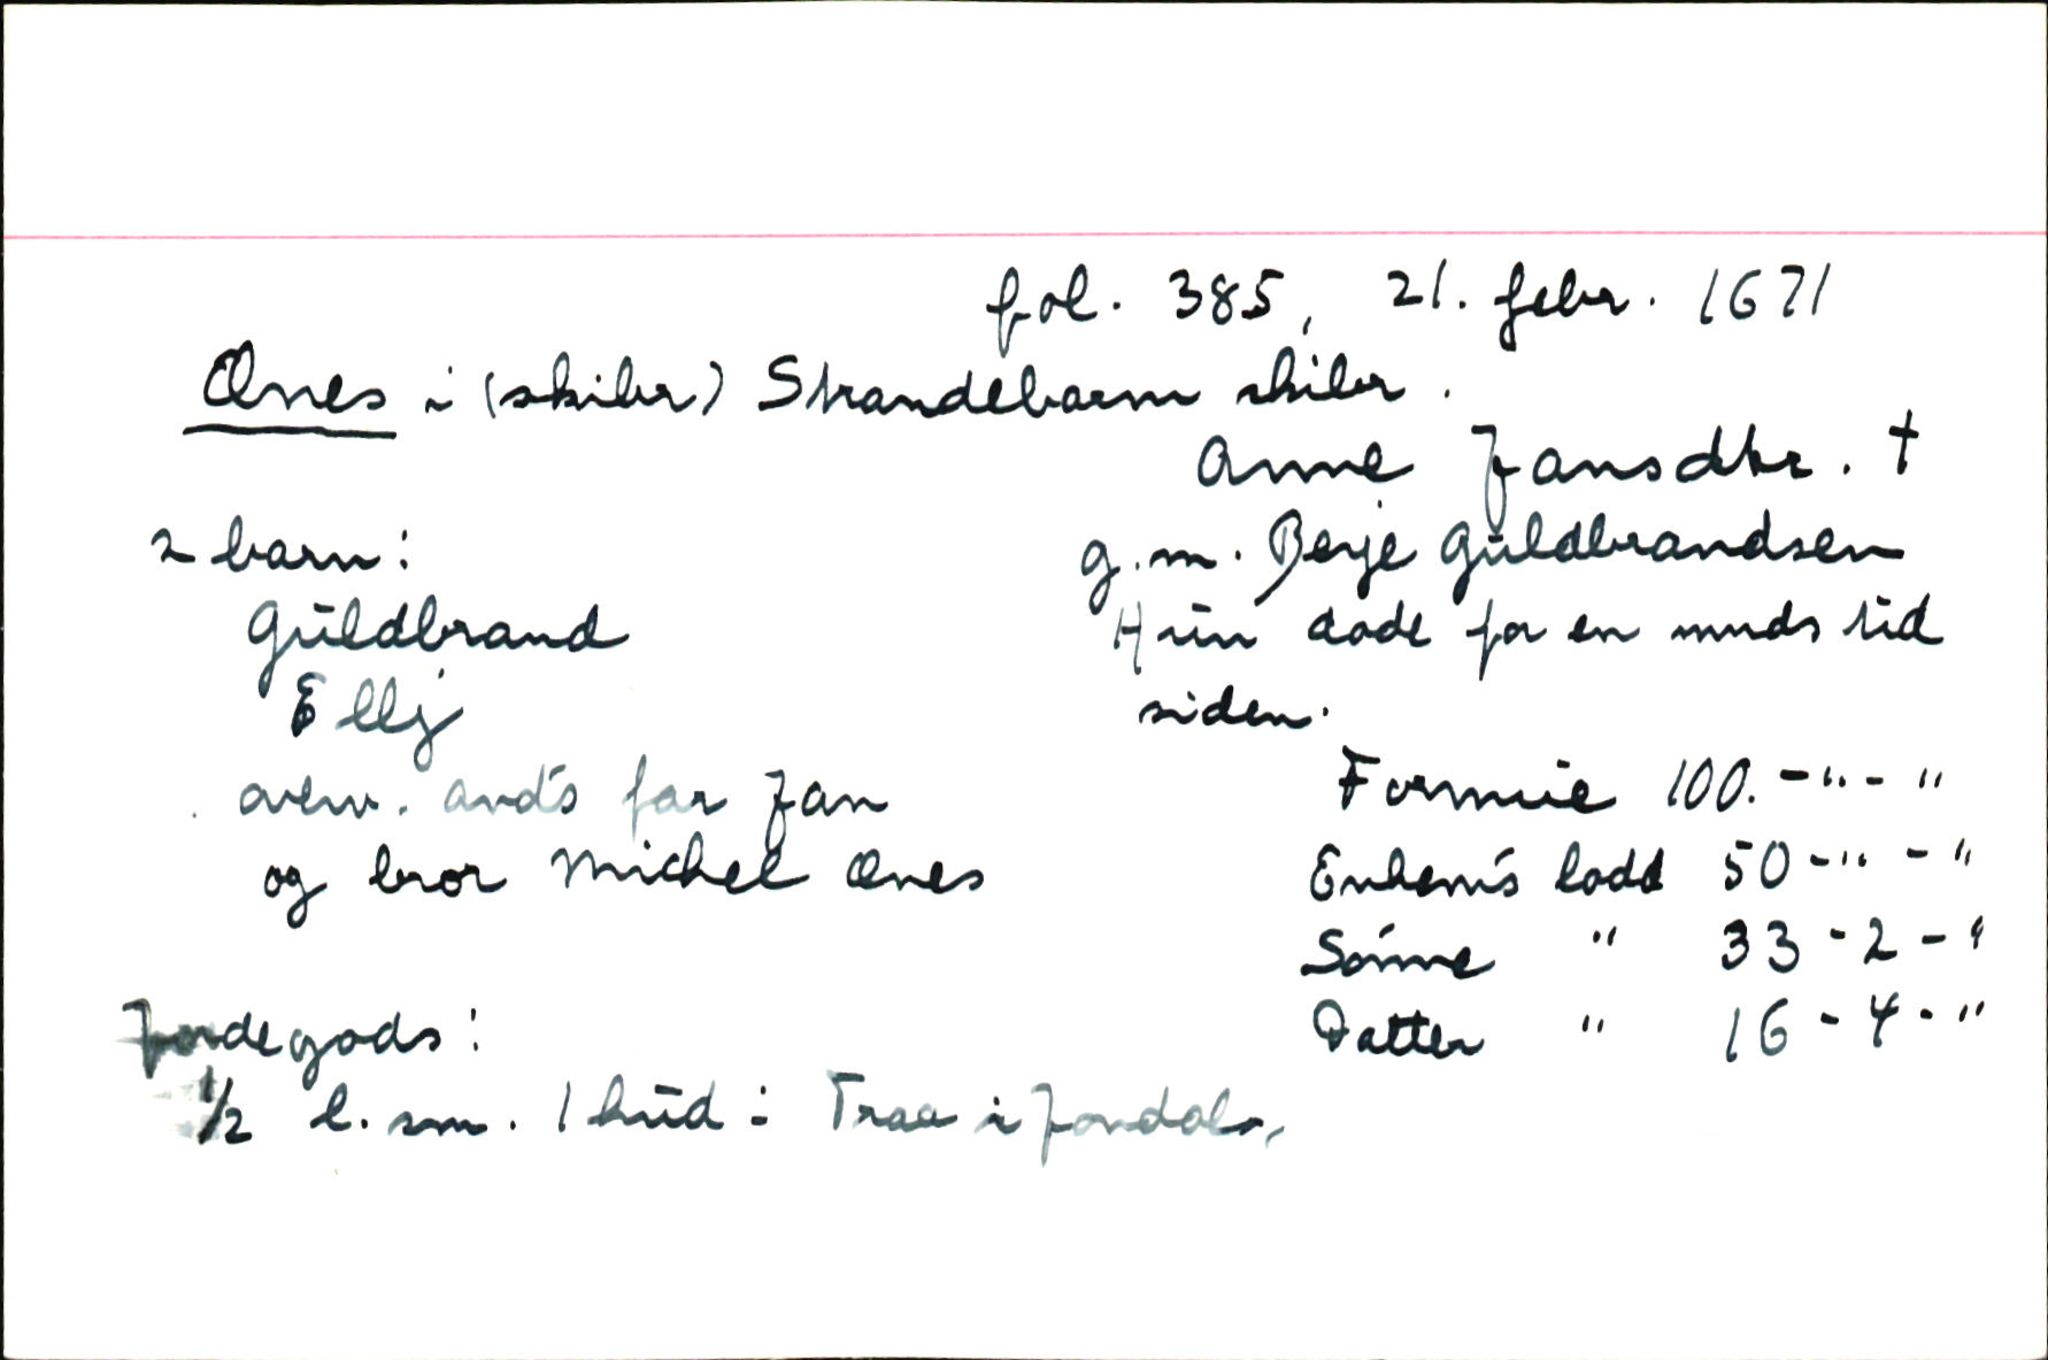 fol. 385, 21. febr. 1671
Ænes i (skibr) Strandebarm skibr.
Anne Jansdtr. †
g. m. Berje Guldbrandsen
Hun døde for en mnds tid
siden.
2 barn:
Guldbrand
Ellj
overv. avd's far Jan
og bror Michel Ænes
Formue 100. - " - "
Enkem's lodd 50 - " - "
Sønne " 33 - 2 - "
Datter " 16 - 4 - "
Jordegods:
1/2 l. sm. 1 hud : Traa i Jondals,